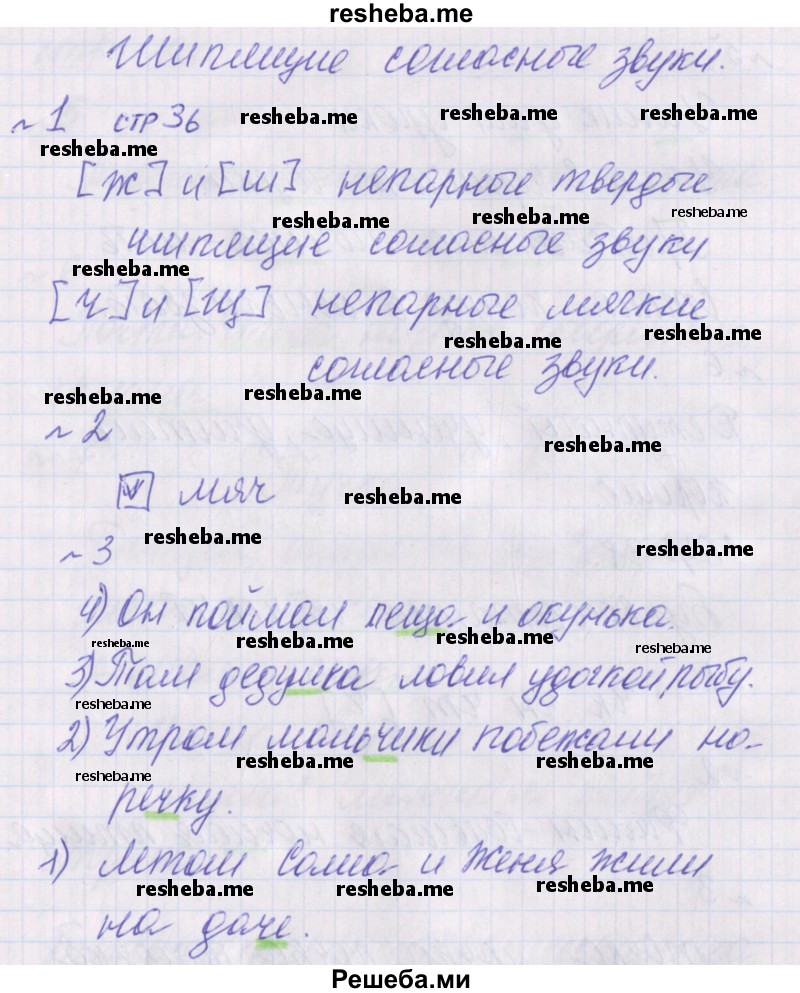 resheba.me
Шипящие согласные звуки.
№ 1 стр 36
resheba.me resheba.me resheba.me
resheba.me
[ж] и [ш] непарные твердые
resheba.me resheba.me resheba.me
шипящие согласные звуки
resheba.me
[ч] и [щ] непарные мягкие
resheba.me resheba.me
согласные звуки.
resheba.me resheba.me
№ 2
resheba.me
мяч
resheba.me
resheba.me
№ 3
resheba.me
4) Он поймал леща и окунька.
resheba.me resheba.me resheba.me resheba.me
3) Там дедушка ловил удочкой рыбу.
resheba.me
2) Утром мальчики побежали на
resheba.me resheba.me resheba.me
речку.
1) Летом Саша и Женя жили
resheba.me resheba.me resheba.me
на даче.
Решеба.ми